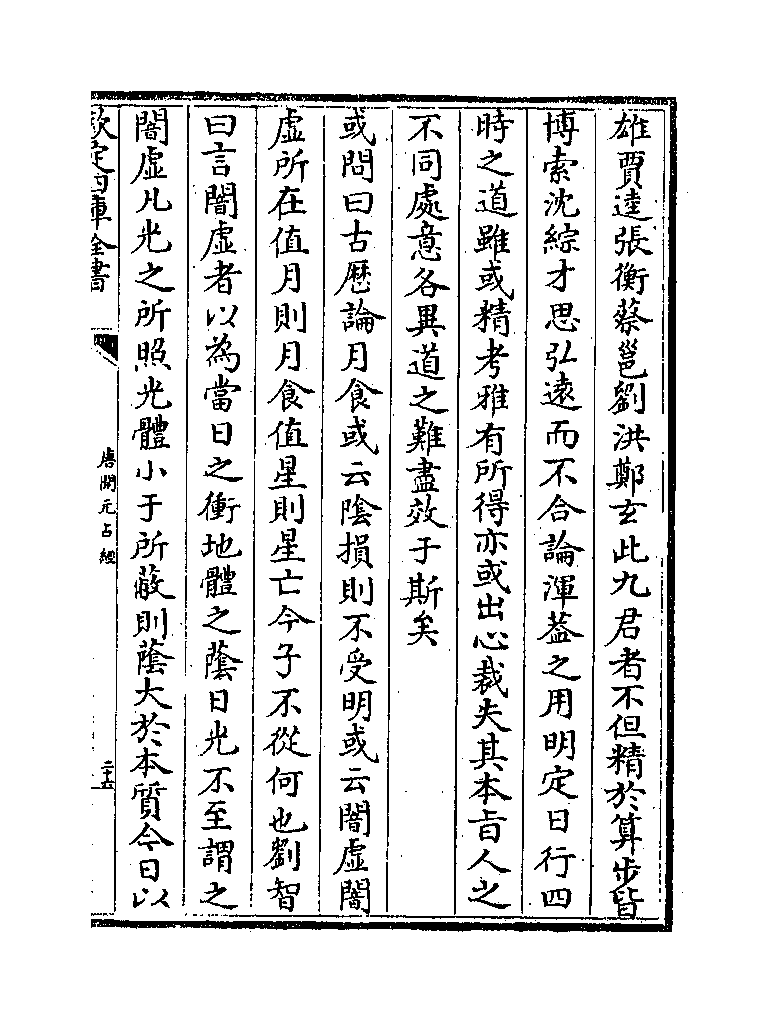 雄賈逵張衡蔡邕劉洪鄭玄此九君者不但精於算步皆
博索沈綜才思弘遠而不合論渾葢之用明定日行四
時之道雖或精考雅有所得亦或出心裁失其本旨人之
不同處意各異道之難盡效于斯矣
或問曰古厯論月食或云陰損則不受明或云闇虛闇
虛所在值月則月食值星則星亡今子不從何也劉智
曰言闇虛者以為當日之衝地體之蔭日光不至謂之
闇虛凡光之所照光體小于所蔽則蔭大於本質今日以
欽定四庫全書
唐開元占經
二十六